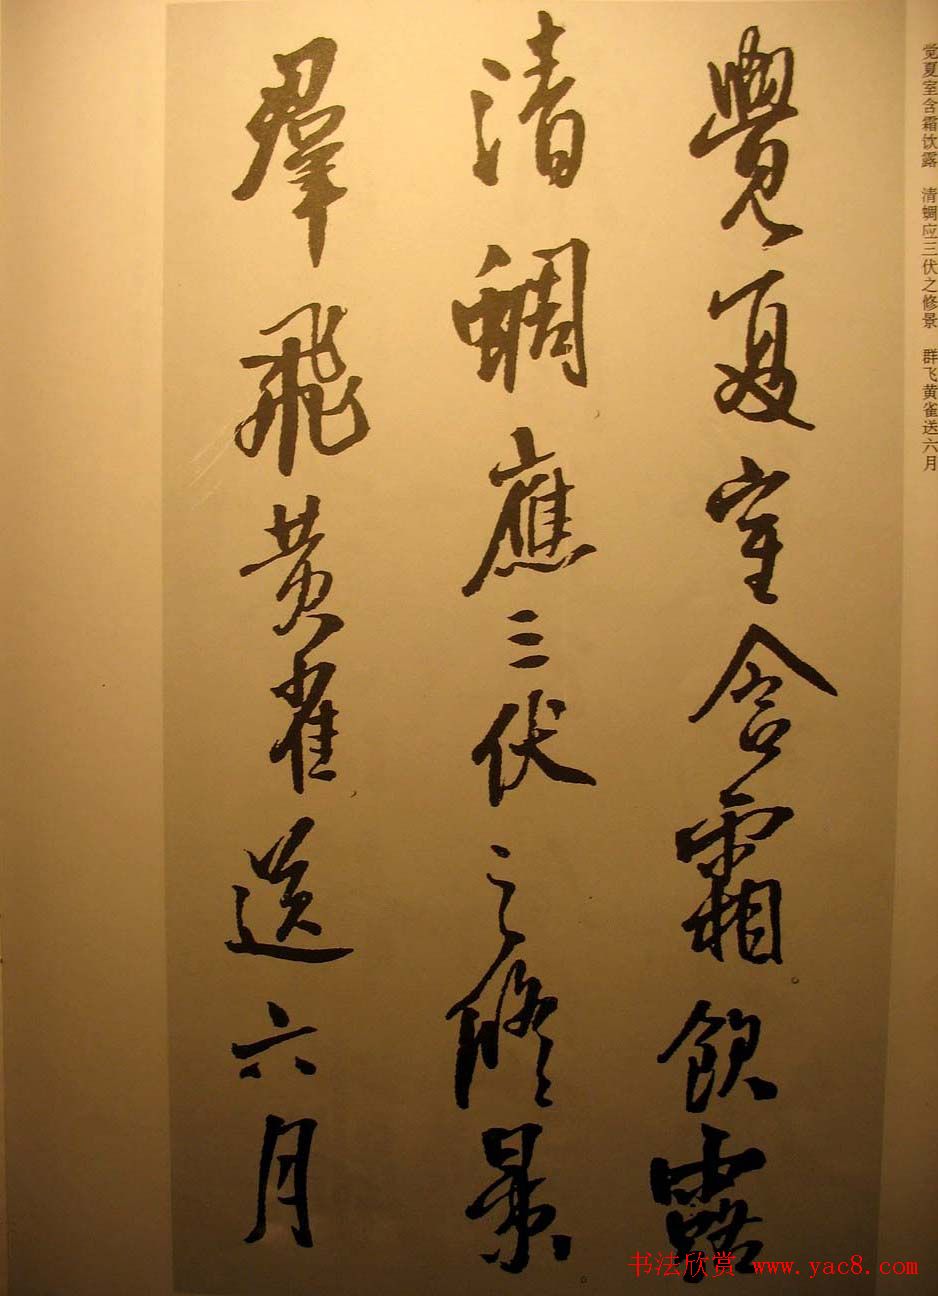 觉夏室含霜饮露　清蜩应三伏之修景　群飞黄雀送六月
覺夏室含霜飲露
清蜩應三伏之脩景
羣飛黄雀送六月
书法欣赏 www.yac8.com